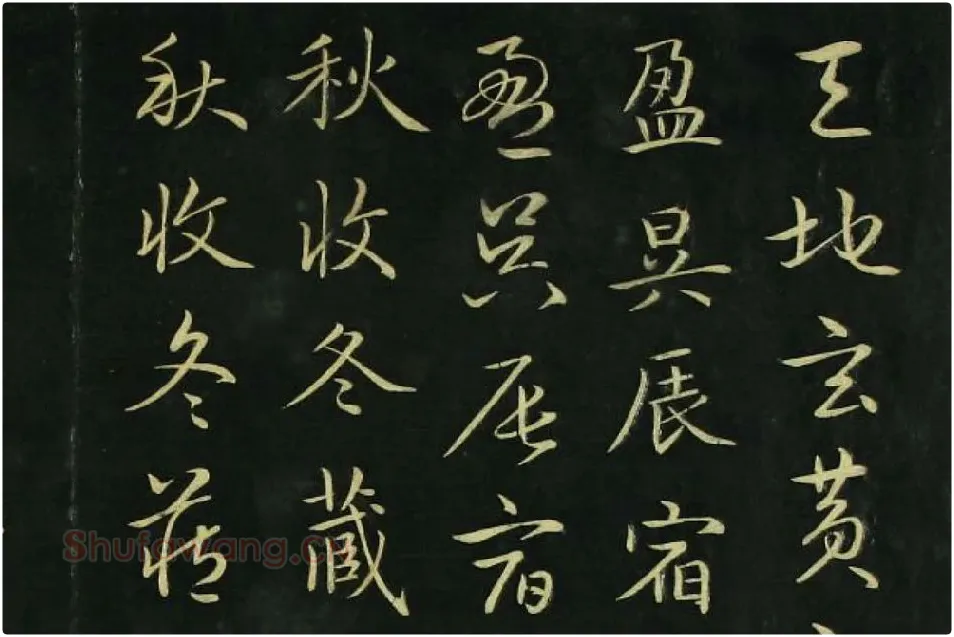 天地玄黃
盈昃辰宿
盈昃辰宿
秋收冬藏
秋收冬藏
Shufawang.cn